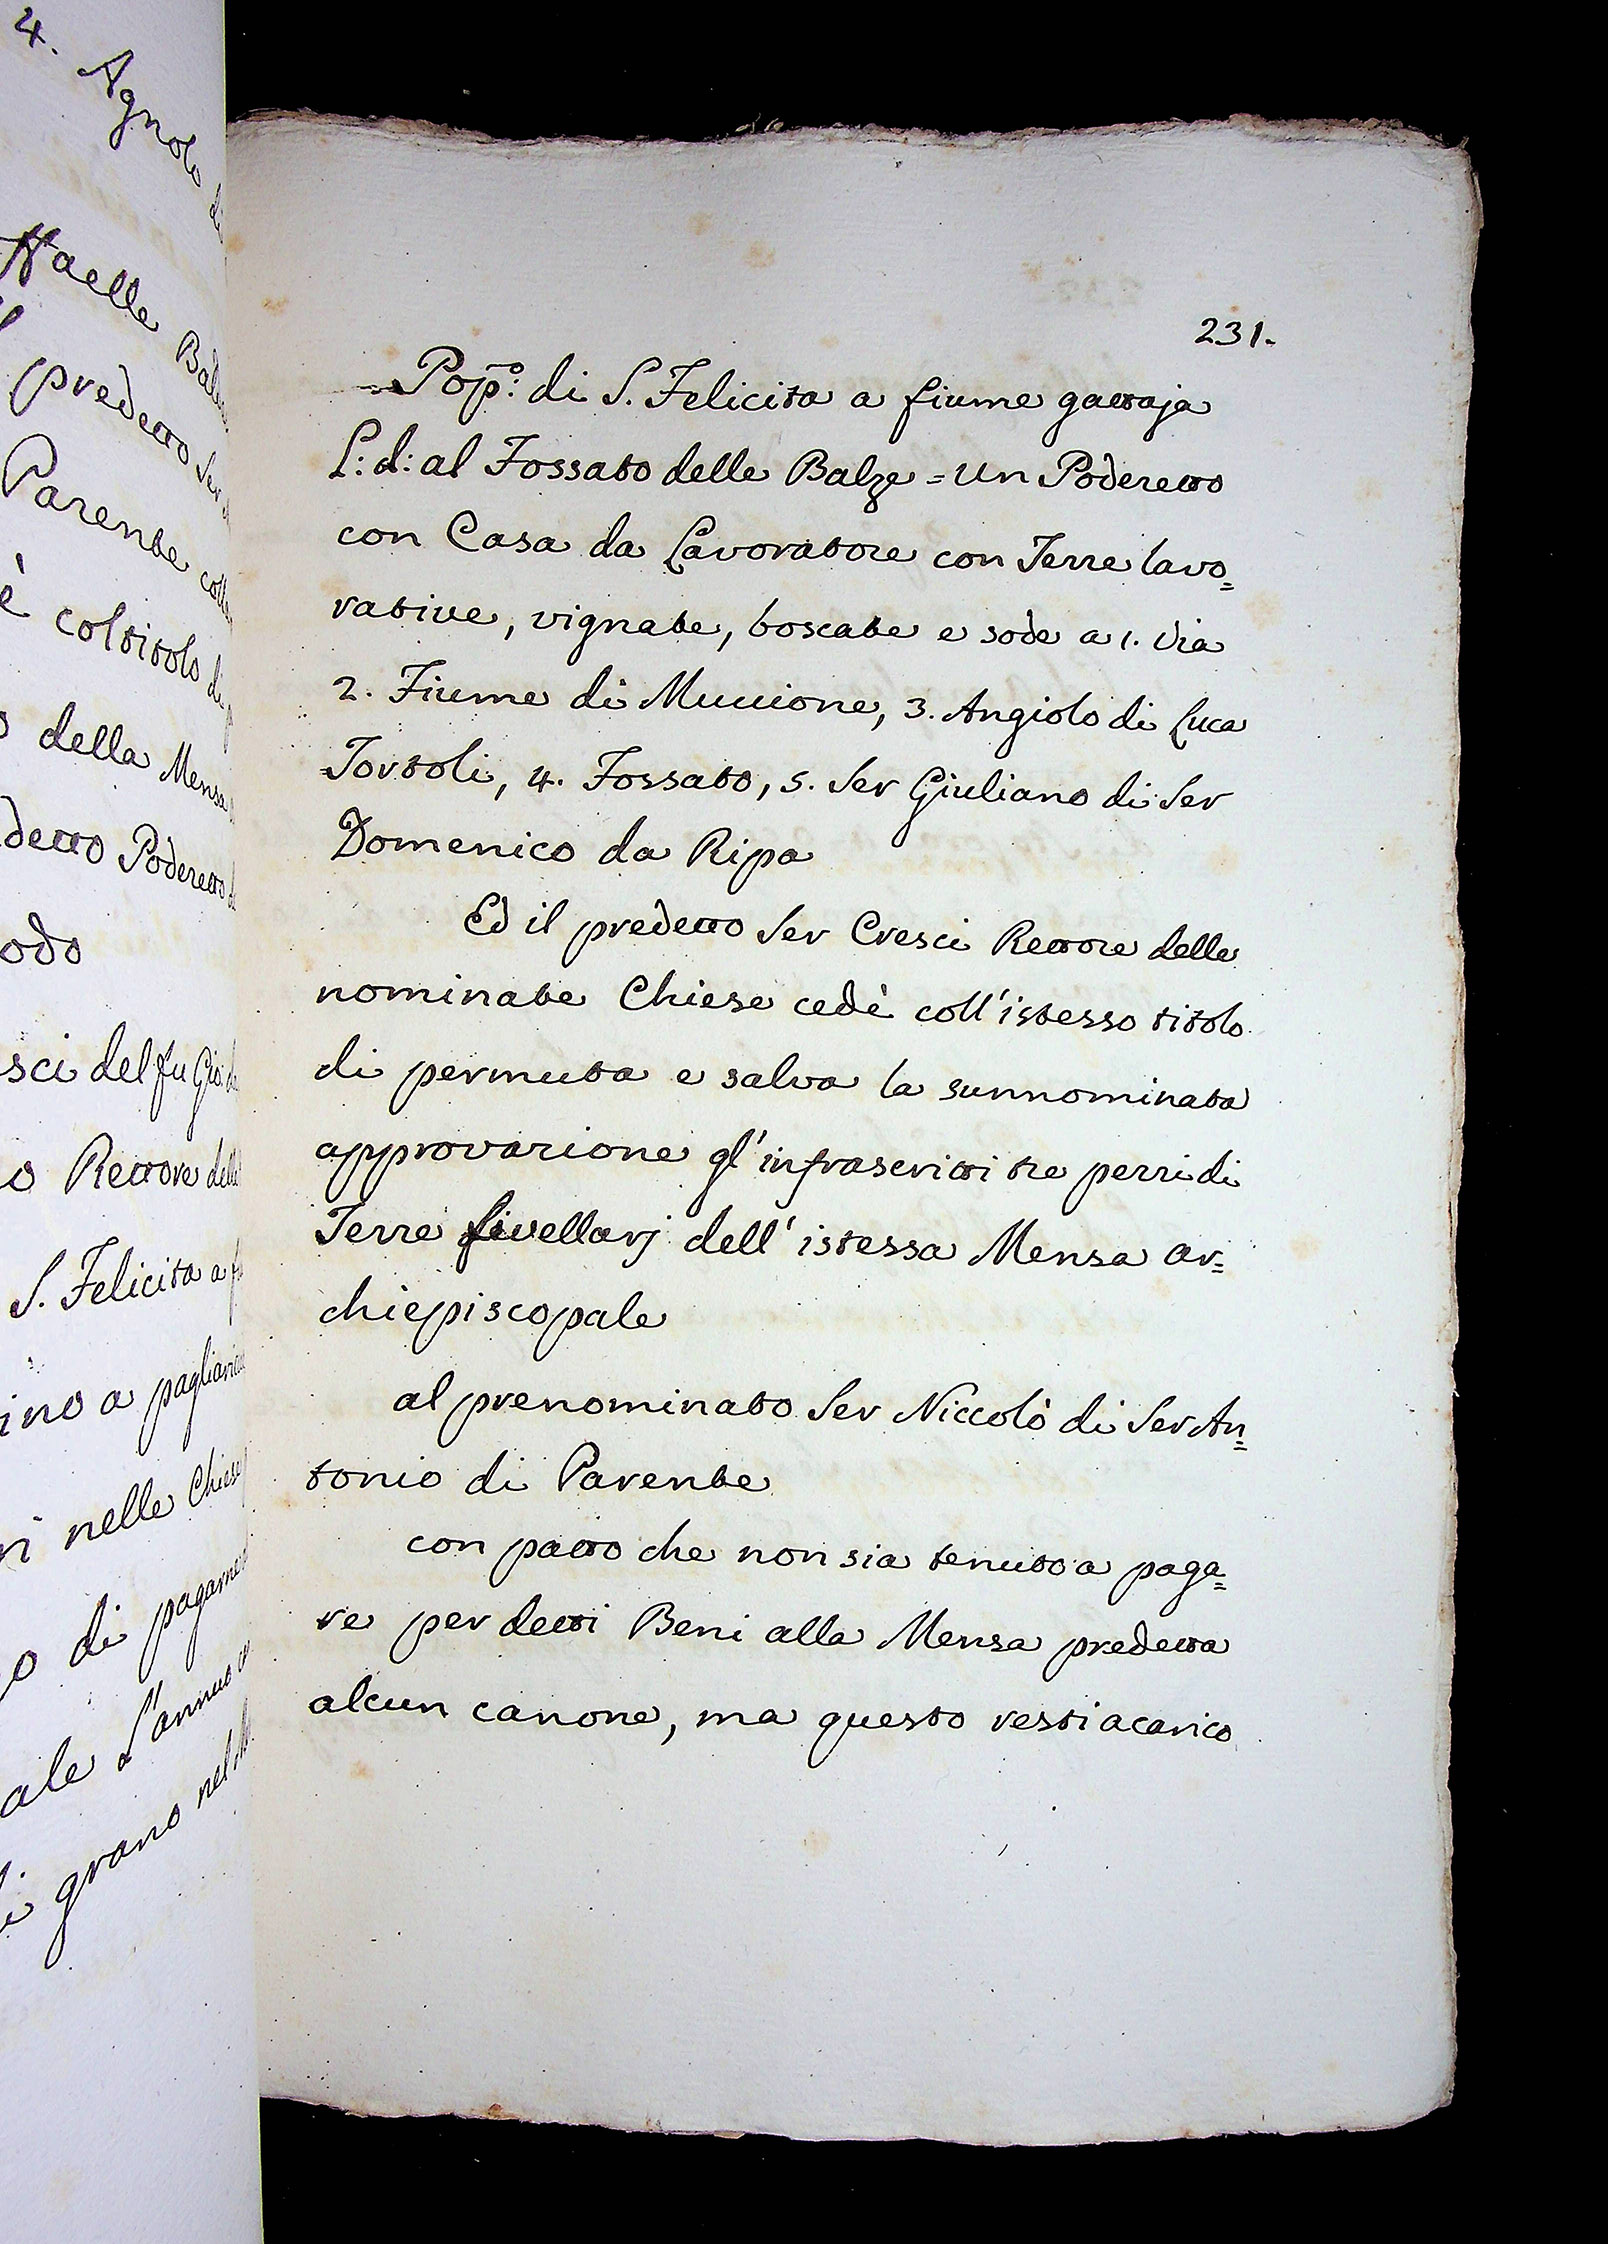 4. Agnolo di
ffaelle
predetto Ser
Parente
è col titolo di
della Mensa
detto Poderetto
odo
sci del fu Gio:
o Rettore delle
S. Felicita a
ino a
ri nelle Chiese
o di
ale l'annuo
grano nel
231.
Popº: di S. Felicita a fiume gattaja
L: d: al Fossato delle Balze = un Poderetto
con Casa da Lavoratore con Terre lavo=
rative, vignate, boscate e sode a 1. via
2. Fiume di Muccione, 3. Angiolo di Luca
Tortoli, 4. Fossato, 5. Ser Giuliano di Ser
Domenico da Ripa
Ed il predetto Ser Cresci Rettore delle
nominate Chiese cedè coll' istesso titolo
di permuta e salva la sunnominata
approvazione gl' infrascritti tre pezzi di
Terre livellarj dell' istessa Mensa ar=
chiepiscopale
al prenominato Ser Niccolò di Ser An=
tonio di Parente
con patto che non sia tenuto a paga=
re per detti Beni alla Mensa predetta
alcun canone, ma questo resti a carico